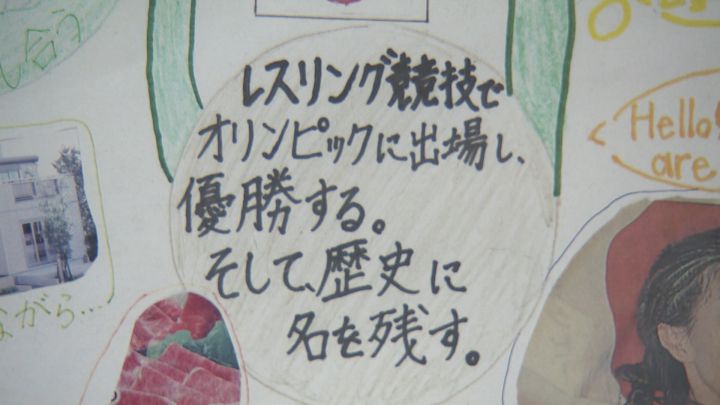 レスリング競技で
オリンピックに出場し、
優勝する。
そして、歴史に
名を残す。
し合う
ながら…
Hello
are